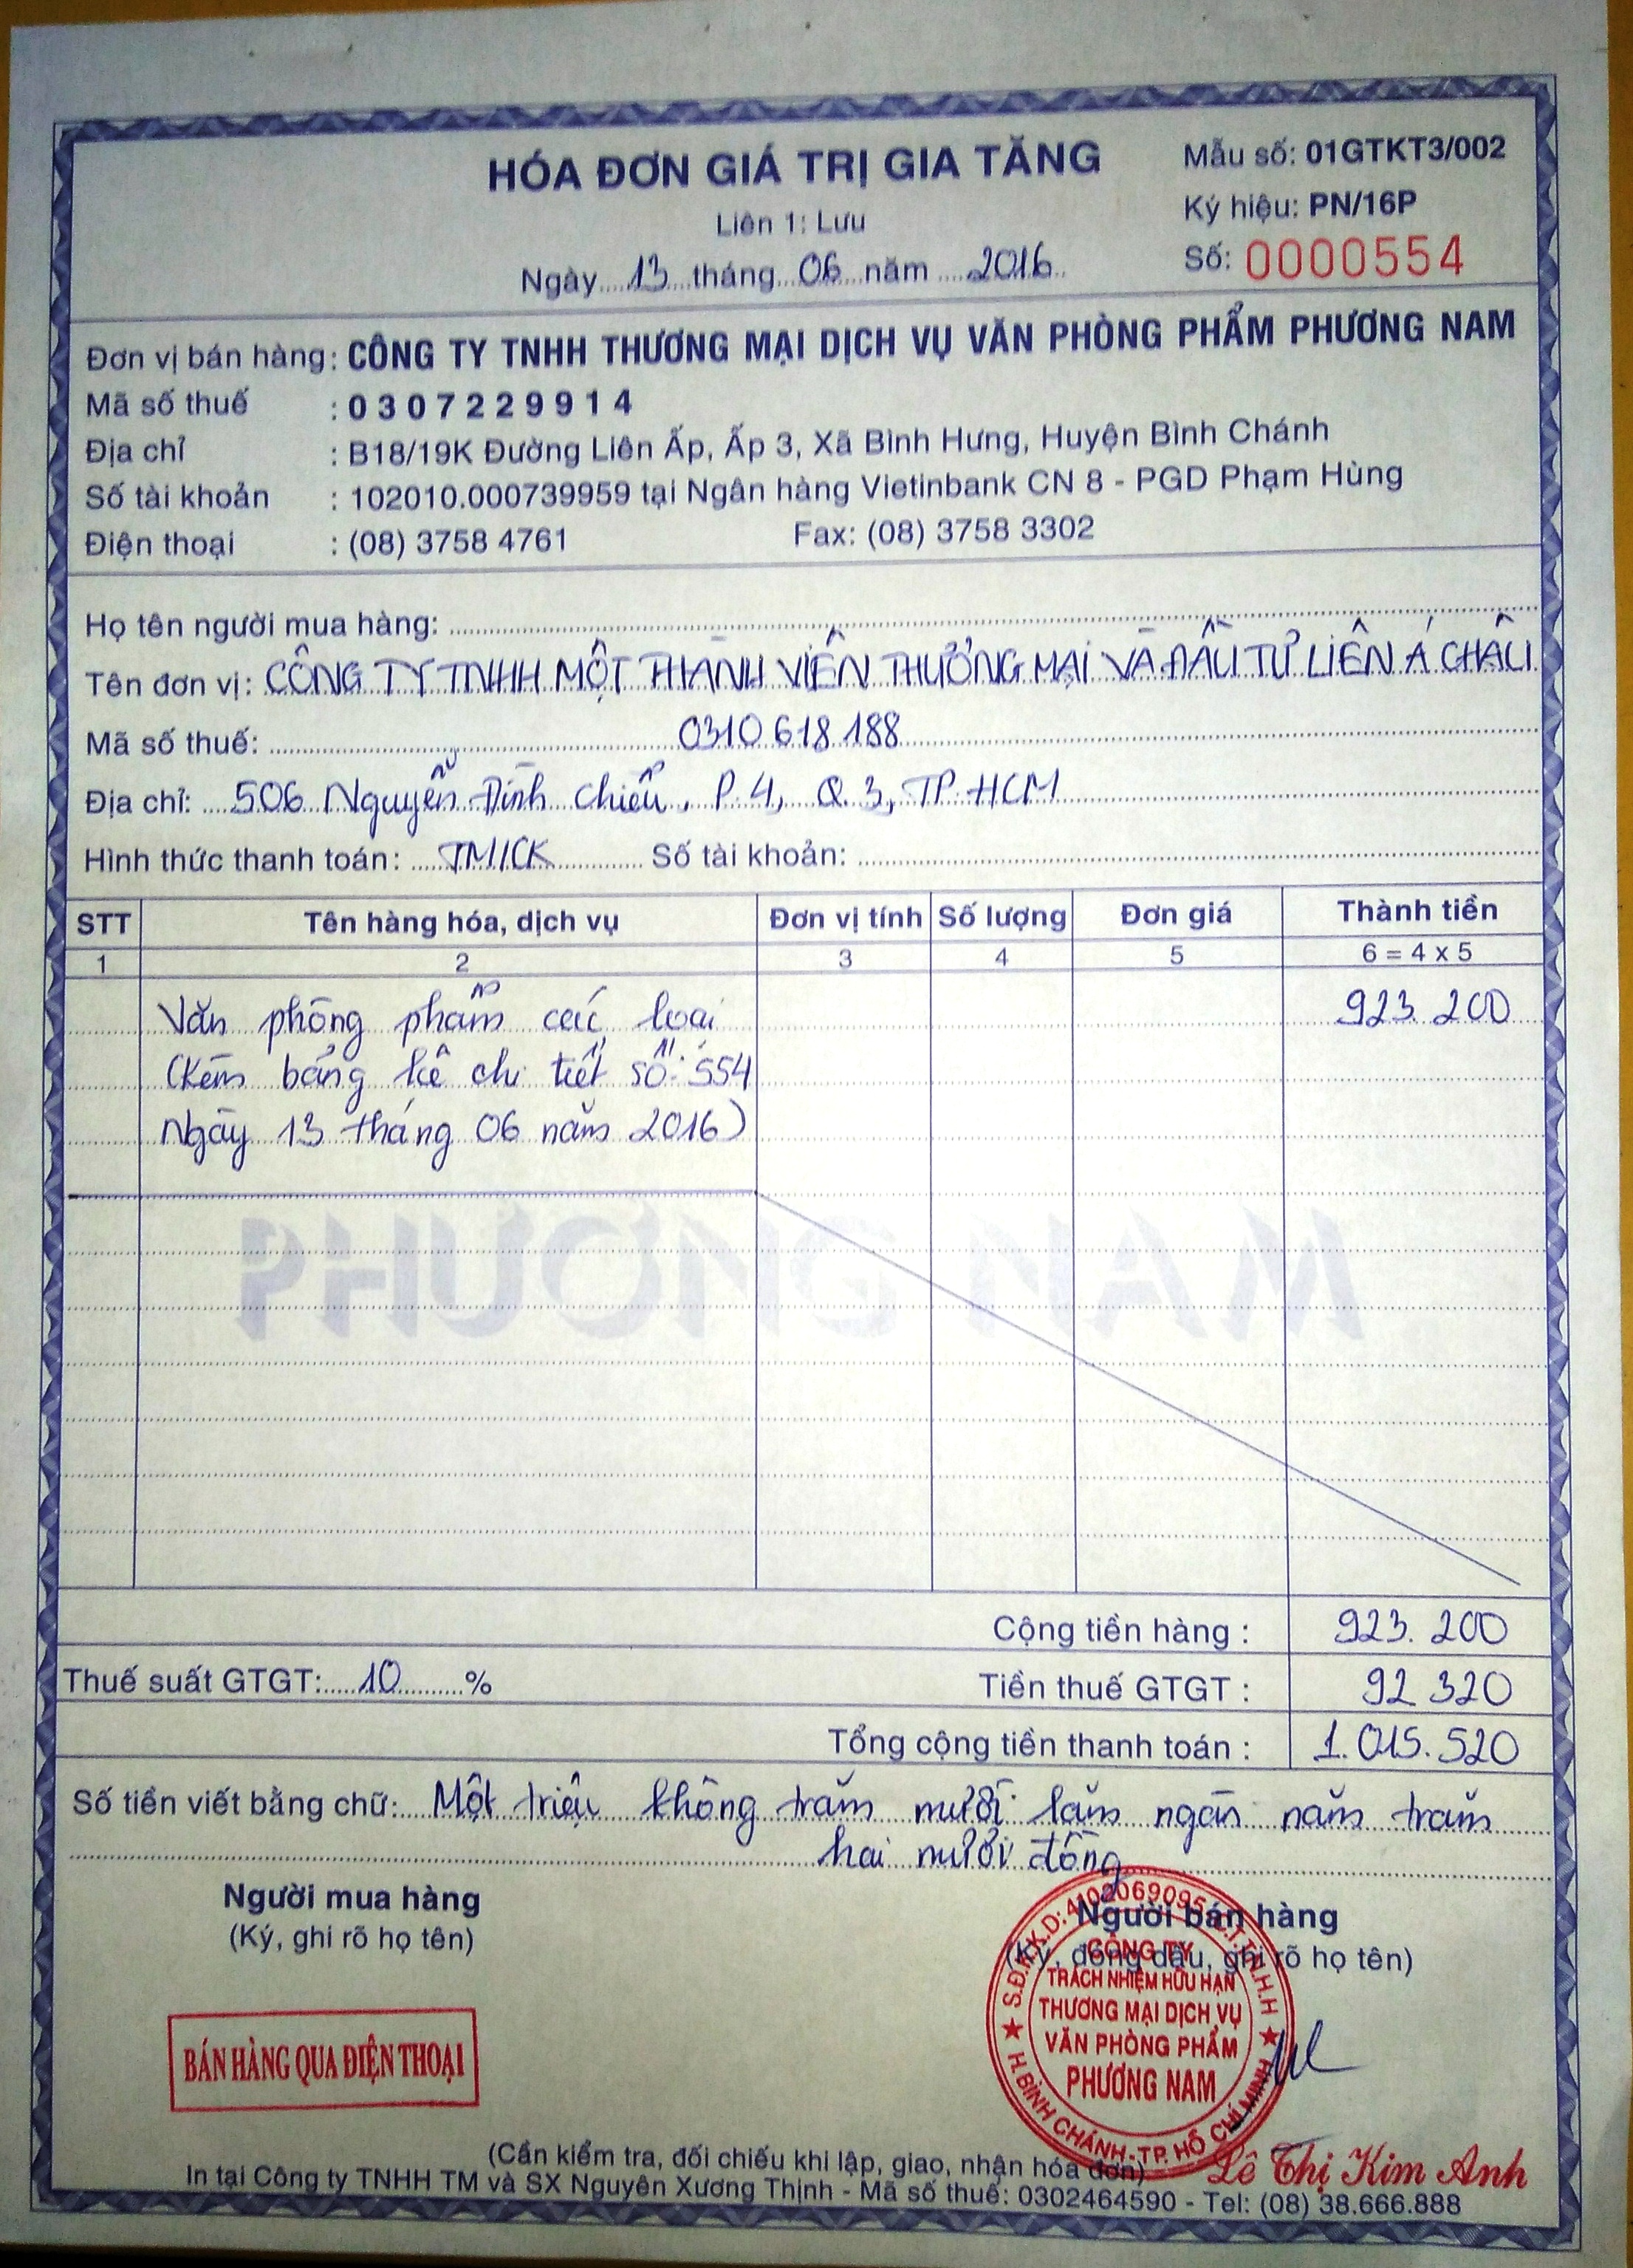 HÓA ĐƠN GIÁ TRỊ GIA TĂNG
Mẫu số: 01GTKT3/002
Liên 1: Lưu
Ký hiệu: PN/16P
Ngày 13 tháng 06 năm 2016
Số: 0000554
Đơn vị bán hàng: CÔNG TY TNHH THƯƠNG MẠI DỊCH VỤ VĂN PHÒNG PHẨM PHƯƠNG NAM
Mã số thuế : 0307229914
Địa chỉ : B18/19K Đường Liên Ấp, Ấp 3, Xã Bình Hưng, Huyện Bình Chánh
Số tài khoản : 102010.000739959 tại Ngân hàng Vietinbank CN 8 - PGD Phạm Hùng
Điện thoại : (08) 3758 4761 Fax: (08) 3758 3302
Họ tên người mua hàng:
Tên đơn vị: CÔNG TY TNHH MỘT THÀNH VIÊN THƯƠNG MẠI VÀ ĐẦU TƯ LIÊN Á CHÂU
Mã số thuế: 0310618188
Địa chỉ: 506 Nguyễn Đình Chiểu, P.4, Q.3, TP.HCM
Hình thức thanh toán: TM/CK Số tài khoản:
STT Tên hàng hóa, dịch vụ Đơn vị tính Số lượng Đơn giá Thành tiền
1 2 3 4 5 6 = 4 x 5
Văn phòng phẩm các loại 923.200
(Kèm bảng kê chi tiết số: 554
Ngày 13 tháng 06 năm 2016)
PHƯƠNG NAM
Cộng tiền hàng : 923.200
Thuế suất GTGT: 10 % Tiền thuế GTGT : 92.320
Tổng cộng tiền thanh toán : 1.015.520
Số tiền viết bằng chữ: Một triệu không trăm mười lăm ngàn năm trăm
hai mươi đồng
Người mua hàng
(Ký, ghi rõ họ tên)
Người bán hàng
(Ký, đóng dấu, ghi rõ họ tên)
S.Đ.K.K.D: 4102069095-C.T.T.N.H.H
CÔNG TY
TRÁCH NHIỆM HỮU HẠN
THƯƠNG MẠI DỊCH VỤ
VĂN PHÒNG PHẨM
PHƯƠNG NAM
H.BÌNH CHÁNH-TP.HỒ CHÍ MINH
BÁN HÀNG QUA ĐIỆN THOẠI
Lê Thị Kim Anh
(Cần kiểm tra, đối chiếu khi lập, giao, nhận hóa đơn)
In tại Công ty TNHH TM và SX Nguyên Xương Thịnh - Mã số thuế: 0302464590 - Tel: (08) 38.666.888